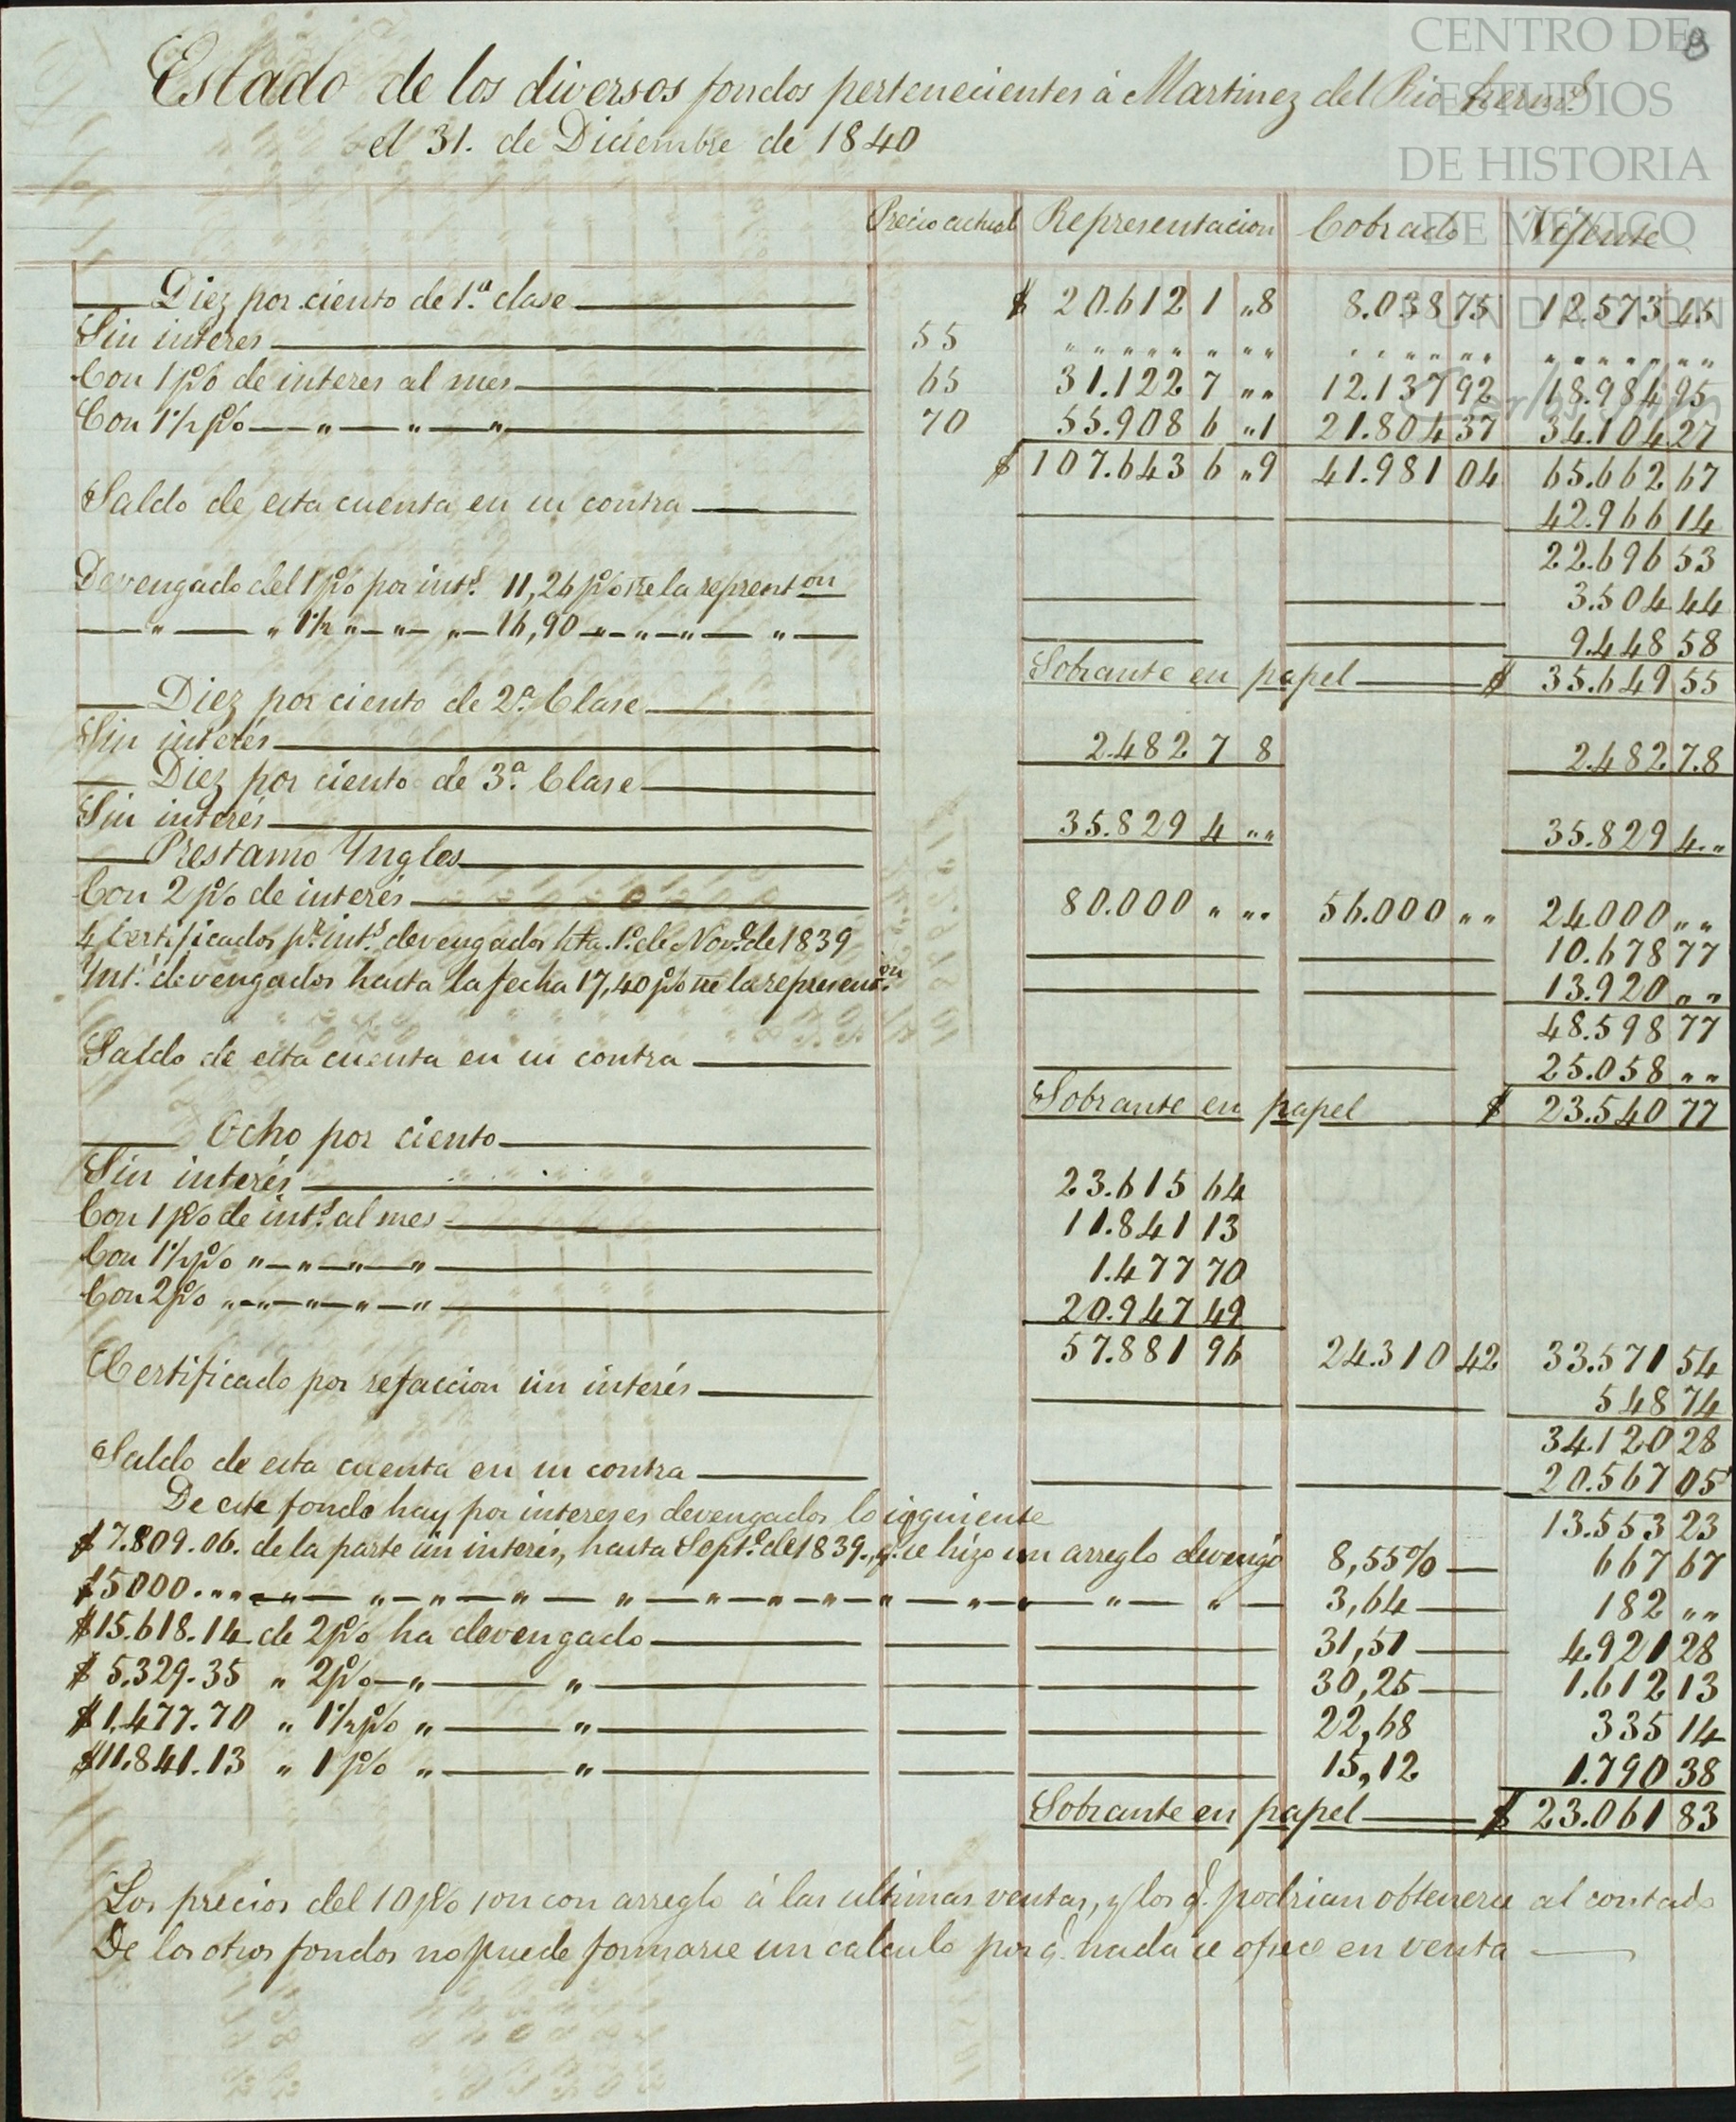 CENTRO DE
ESTUDIOS
DE HISTORIA
DE MEXICO
FUNDACION
Carlos Slim
8
Estado de los diversos fondos pertenecientes á Martinez del Rio herm.s
el 31. de Diciembre de 1840
Precio actual Representacion Cobrado Vijente
Diez por ciento de 1.a clase $ 20.612 1 „8 8.038 75 12.573 45
Sin interes 55 „ „ „ „ „ „ „ „ „ „ „ „ „ „ „ „ „ „ „ „ „
Con 1 p% de interes al mes 65 31.122 7 „„ 12.137 92 18.984 95
Con 1½ p% „ „ „ 70 55.908 6 „1 21.804 37 34.104 27
$ 107.643 6 „9 41.981 04 65.662 67
Saldo de esta cuenta en su contra 42.966 14
22.696 53
Devengado del 1 p% por int.s 11,26 p% sre la represent on 3.504 44
„ „ 1½ „ „ „ 16,90 „ „ „ 9.448 58
Sobrante en papel $ 35.649 55
Diez por ciento de 2.a Clase
Sin interés 2.482 7 8 2.482 7.8
Diez por ciento de 3.a Clase
Sin interés 35.829 4 „„ 35.829 4 „„
Prestamo Yngles
Con 2 p% de interés 80.000 „ „„ 56.000 „„ 24.000 „„
4 Certificados p.r int.s devengados hta. 1.o de Nov.e de 1839 10.678 77
Int.s devengados hasta la fecha 17,40 p% sre la represen.on 13.920 „„
48.598 77
Saldo de esta cuenta en su contra 25.058 „„
Sobrante en papel $ 23.540 77
Ocho por ciento
Sin interés 23.615 64
Con 1 p% de int.s al mes 11.841 13
Con 1½ p% „ „ „ „ 1.477 70
Con 2 p% „ „ „ „ „ 20.947 49
57.881 96 24.310 42 33.571 54
Certificado por refaccion sin interés 548 74
34.120 28
Saldo de esta cuenta en su contra 20.567 05
De este fondo hay por intereses devengados lo siguiente 13.553 23
$ 7.809.06. de la parte sin interés, hasta Sept.e de 1839., q. se hizo un arreglo devengó 8,55% 667 67
$ 5000. „„ „ „ „ „ „ „ „ „ „ „ „ „ 3,64 182 „„
$ 15.618.14 de 2 p% ha devengado 31,51 4.921 28
$ 5.329.35 „ 2 p% „ „ 30,25 1.612 13
$ 1.477.70 „ 1½ p% „ „ 22,68 335 14
$ 11.841.13 „ 1 p% „ „ 15,12 1.790 38
Sobrante en papel $ 23.061 83
Los precios del 10 p% son con arreglo á las ultimas ventas, y los q. podrian obtenerse al contado
De los otros fondos no puede formarse un calculo por q. nada se ofrece en venta